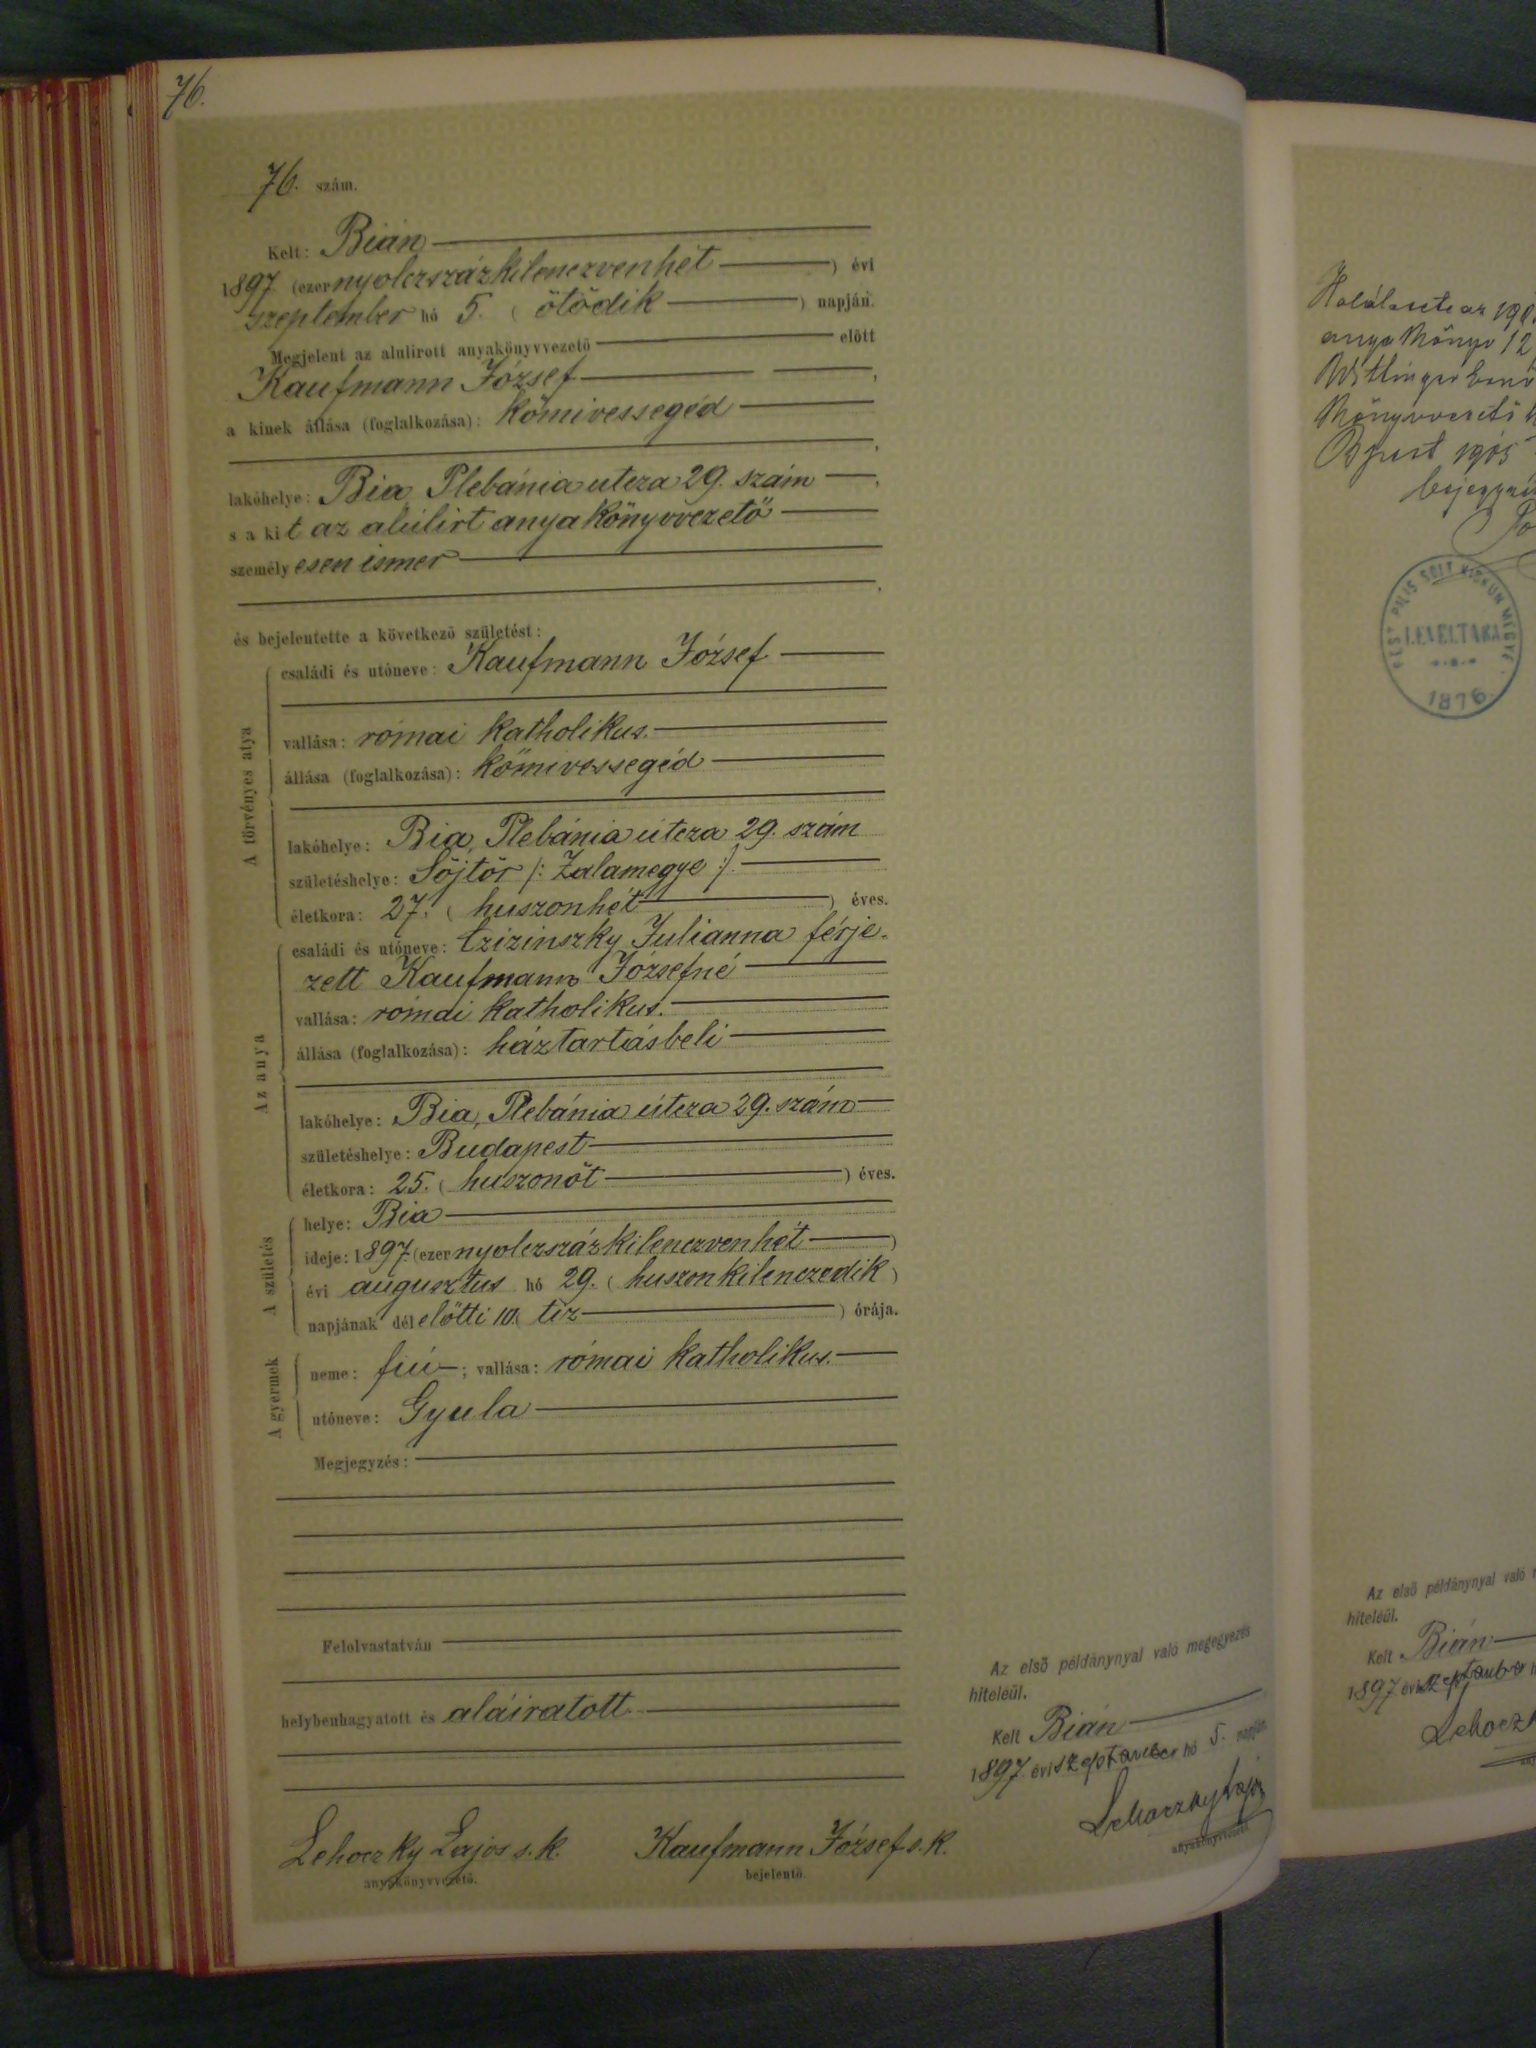 76.
76. szám.
Kelt: Bián
1897 (ezernyolczszázkilenczvenhét) évi
szeptember hó 5. (ötödik) napján.
Megjelent az alulirott anyakönyvvezető előtt
Kaufmann József,
a kinek állása (foglalkozása): kőmivessegéd
,
lakóhelye: Bia, Plebánia utcza 29. szám,
s a kit az alúlirt anyakönyvvezető
személyesen ismer
,
és bejelentette a következő születést:
A törvényes atya
családi és utóneve: Kaufmann József
vallása: római katholikus.
állása (foglalkozása): kőmivessegéd
lakóhelye: Bia, Plebánia útcza 29. szám
születéshelye: Söjtör /: Zalamegye :/.
életkora: 27. (huszonhét) éves.
Az anya
családi és utóneve: Czizinszky Julianna férje-
zett Kaufmann Józsefné
vallása: római katholikus.
állása (foglalkozása): háztartásbeli
lakóhelye: Bia, Plebánia útcza 29. szám
születéshelye: Budapest
életkora: 25. (huszonöt) éves.
A születés
helye: Bia
ideje: 1897 (ezernyolczszázkilenczvenhét)
évi augusztus hó 29. (huszonkilenczedik)
napjának délelőtti 10. (tiz) órája.
A gyermek
neme: fiú; vallása: római katholikus.
utóneve: Gyula
Megjegyzés:
Felolvastatván
helybenhagyatott és aláiratott
Lehoczky Lajos s.k. Kaufmann József s.k.
anyakönyvvezető. bejelentő.
Az első példánynyal való megegyezés
hiteléül.
Kelt Bián
1897 évi szeptember hó 5. napján
Lehoczky Lajos
anyakönyvvezető
Halálesete az 190
anyakönyv 12
könyvvezető
Bpest 1905
PEST PILIS SOLT KISKUN MEGYE
LEVELTARA
1876
Az első példánynyal való
hiteléül.
Kelt Bián
1897 évi szeptember
Lehocz